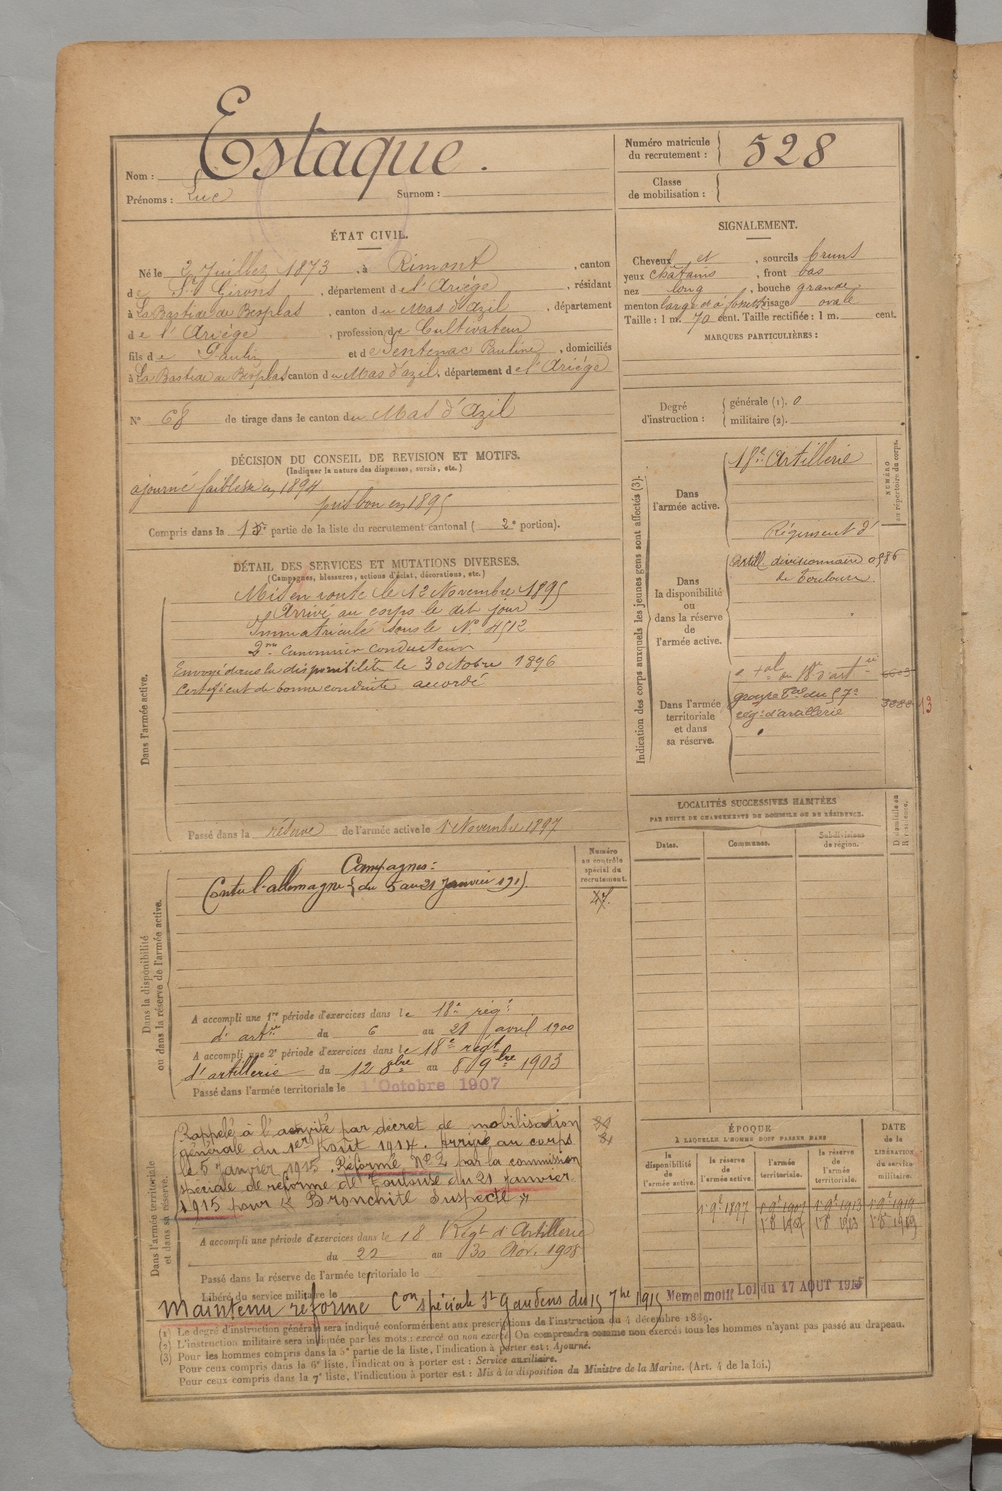 Estaque.
Nom :
Prénoms : Luc Surnom :
Numéro matricule
du recrutement : 528
Classe
de mobilisation :
ÉTAT CIVIL.
Né le 2 Juillet 1873, à Rimont, canton
de St Girons, département de l'Ariège, résidant
à La Bastide de Besplas, canton du Mas d'Azil, département
de l'Ariège, profession de Cultivateur
fils de Paulin et de Sentenac Pauline, domiciliés
à La Bastide de Besplas canton du Mas d'azil, département de l'Ariège
N° 68 de tirage dans le canton du Mas d'Azil
SIGNALEMENT.
Cheveux et, sourcils bruns
yeux châtains, front bas
nez long, bouche grande,
menton large et à fossette visage ovale
Taille : 1 m. 70 cent. Taille rectifiée : 1 m. cent.
MARQUES PARTICULIÈRES :
Degré
d'instruction :
générale (1). 0
militaire (2).
DÉCISION DU CONSEIL DE REVISION ET MOTIFS.
(Indiquer la nature des dispenses, sursis, etc.)
ajourné faiblesse en 1894
pris bon en 1895
Compris dans la partie de la liste du recrutement cantonal ( 2e portion).
DÉTAIL DES SERVICES ET MUTATIONS DIVERSES.
(Campagnes, blessures, actions d'éclat, décorations, etc.)
Dans l'armée active.
Mis en route le 12 Novembre 1895
Arrivé au corps le dit jour
Immatriculé sous le N° 4512
2me Canonnier conducteur
Envoyé dans la disponibilité le 3 octobre 1896
Certificat de bonne conduite accordé
Passé dans la réserve de l'armée active le 1 Novembre 1897
Indication des corps auxquels les jeunes gens sont affectés (3).
NUMÉRO
au répertoire du corps.
Dans
l'armée active.
18e Artillerie
Dans
la disponibilité
ou
dans la réserve
de
l'armée active.
Régiment d'
Artill. divisionnaire 0586
de Toulouse.
Dans l'armée
territoriale
et dans
sa réserve.
du 18e d'artie
groupe tal du 57e
rég. d'artillerie
13
LOCALITÉS SUCCESSIVES HABITÉES
PAR SUITE DE CHANGEMENTS DE DOMICILE OU DE RÉSIDENCE.
Dates. Communes. Subdivisions
de région.
D domicile ou
R résidence.
Dans la disponibilité
ou dans la réserve de l'armée active.
Numéro
au contrôle
spécial du
recrutement.
Campagnes :
Contre l'allemagne { du 5 au 21 Janvier 1915
A accompli une 1re période d'exercices dans le 18e régt
d'artie du 6 au 21 avril 1900
A accompli une 2e période d'exercices dans le 18e régt
d'artillerie du 12 8bre au 8 9bre 1903
Passé dans l'armée territoriale le 1 Octobre 1907
Dans l'armée territoriale
et dans sa réserve.
Rappelé à l'activité par décret de mobilisation
générale du 1er Août 1914. Arrivé au corps
le 5 janvier 1915. Réformé N° 2 par la commission
spéciale de réforme de Toulouse du 21 janvier
1915 pour « Bronchite suspecte »
A accompli une période d'exercices dans le 18 Régt d'Artillerie
du 22 au 30 Nov. 1908
Passé dans la réserve de l'armée territoriale le
Libéré du service militaire le
Maintenu réformé Con spéciale St Gaudens du 15 7bre 1915 Meme motif Loi du 17 AOUT 1915
ÉPOQUE
À LAQUELLE L'HOMME DOIT PASSER DANS
DATE
de la
LIBÉRATION
du service
militaire.
la
disponibilité
de
l'armée active.
la réserve
de
l'armée active.
l'armée
territoriale.
la réserve
de
l'armée
territoriale.
1 9e 1897 1 9e 1907 1 9e 1913 1 9e 1919
(1) Le degré d'instruction générale sera indiqué conformément aux prescriptions de l'instruction du 4 décembre 1889.
(2) L'instruction militaire sera indiquée par les mots : exercé ou non exercé. On comprendra comme non exercés tous les hommes n'ayant pas passé au drapeau.
(3) Pour les hommes compris dans la 5e partie de la liste, l'indication à porter est : Ajourné.
Pour ceux compris dans la 6e liste, l'indication à porter est : Service auxiliaire.
Pour ceux compris dans la 7e liste, l'indication à porter est : Mis à la disposition du Ministre de la Marine. (Art. 4 de la loi.)